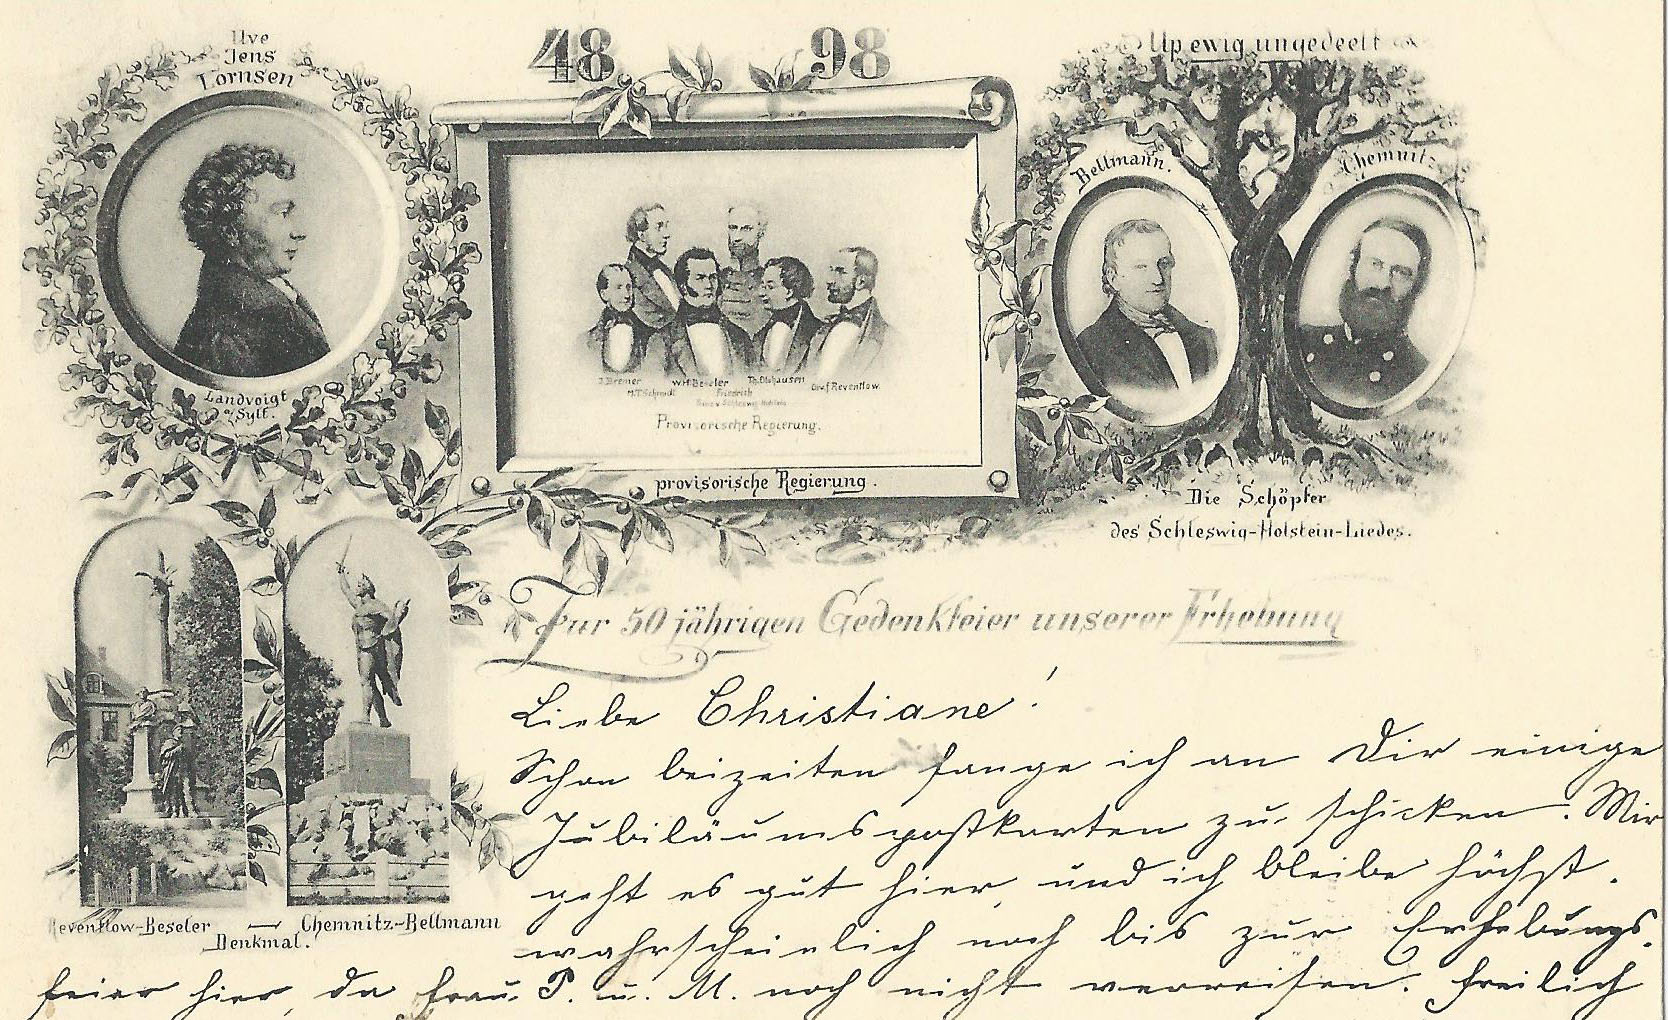 Uve
Jens
Lornsen
48 98
Up ewig ungedeelt
Bellmann.
Chemnitz
Landvoigt
a/Sylt.
J. Bremer W.H. Beseler Th. Olshausen Graf Reventlow.
M.T. Schmidt Friedrich
Provisorische Regierung.
provisorische Regierung.
Die Schöpfer
des Schleswig-Holstein-Liedes.
Reventlow-Beseler — Chemnitz-Bellmann
Denkmal.
Zur 50 jährigen Gedenkfeier unserer Erhebung
Liebe Christiane!
Schon beizeiten fange ich an Dir einige
Jubiläumspostkarten zu schicken. Mir
geht es gut hier, und ich bleibe höchst-
wahrscheinlich noch bis zur Erhebungs-
feier hier, da Frau P. u. M. noch nicht verreisen. Freilich